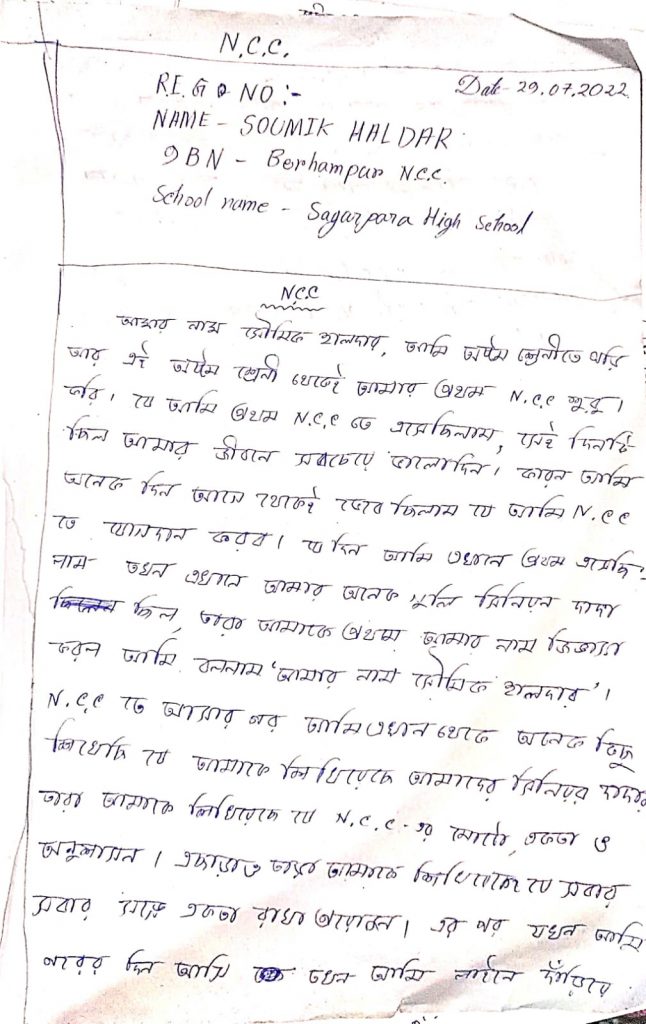 N.C.C.
Date - 29.07.2022
REG NO :-
NAME - SOUMIK HALDAR
9BN - Berhampur N.C.C.
School name - Sagarpara High School
N.C.C
আমার নাম সৌমিক হালদার, আমি অষ্টম শ্রেনীতে পড়ি
আর এই অষ্টম শ্রেনী থেকেই আমার প্রথম N.C.C শুরু
করি। যে আমি প্রথম N.C.C তে এসেছিলাম, সেই দিনটি
ছিল আমার জীবনে সবচেয়ে ভালোদিন। কারন আমি
অনেক দিন আগে থেকেই ভেবে ছিলাম যে আমি N.CC
তে যোগদান করব। যে দিন আমি এখানে প্রথম এসেছি-
লাম তখন এখানে আমার অনেক গুলি সিনিয়র দাদা
ছিল, তারা আমাকে প্রথম আমার নাম জিজ্ঞাসা
করল আমি বললাম 'আমার নাম সৌমিক হালদার'।
N.C.C তে আসার পর আমি এখান থেকে অনেক কিছু
শিখেছি যে আমাকে শিখিয়েছে আমাদের সিনিয়র দাদারা
তারা আমাকে শিখিয়েছে যে N.C.C-এর মোটো, একতা ও
অনুশাসন। এছাড়াও তারা আমাকে শিখিয়েছে যে সবার
সবার সঙ্গে একতা রাখা প্রয়োজন। এর পর যখন আমি
পরের দিন আসি তখন আমি লাইনে দাঁড়িয়ে